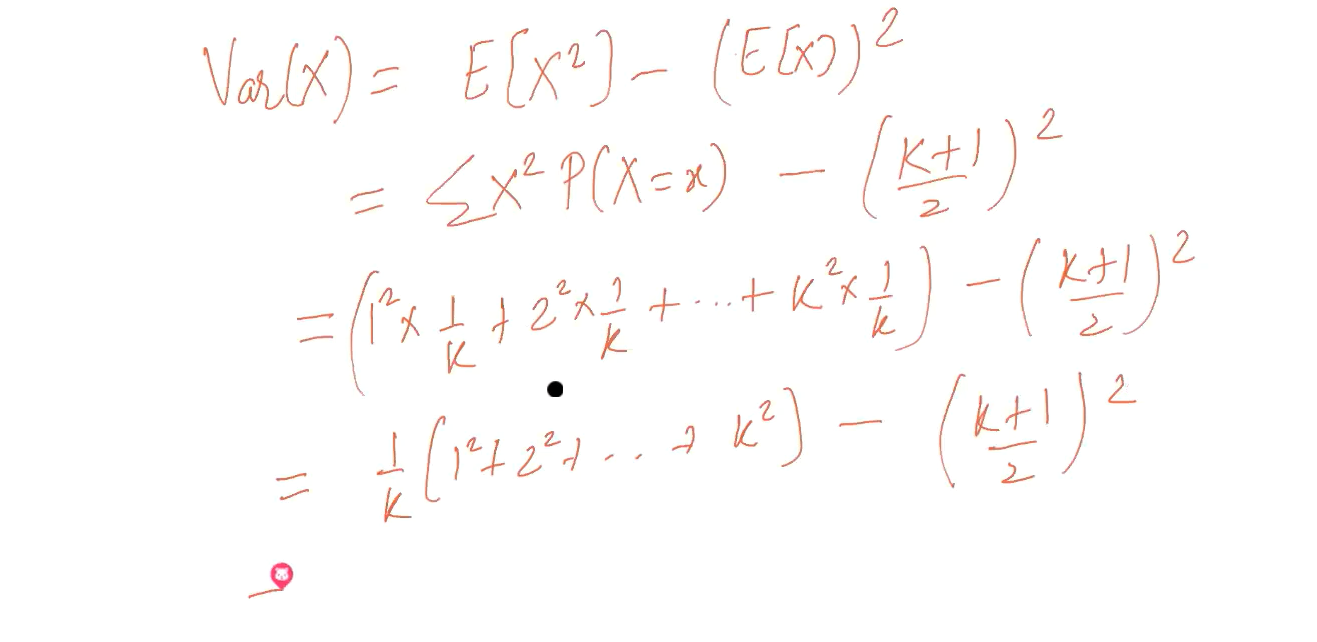 Var(X) = E[X²] - (E[X])²
= ∑x² P(X=x) - (K+1/2)²
= (1² x 1/K + 2² x 1/K + ... + K² x 1/K) - (K+1/2)²
= 1/K (1² + 2² + ... + K²) - (K+1/2)²